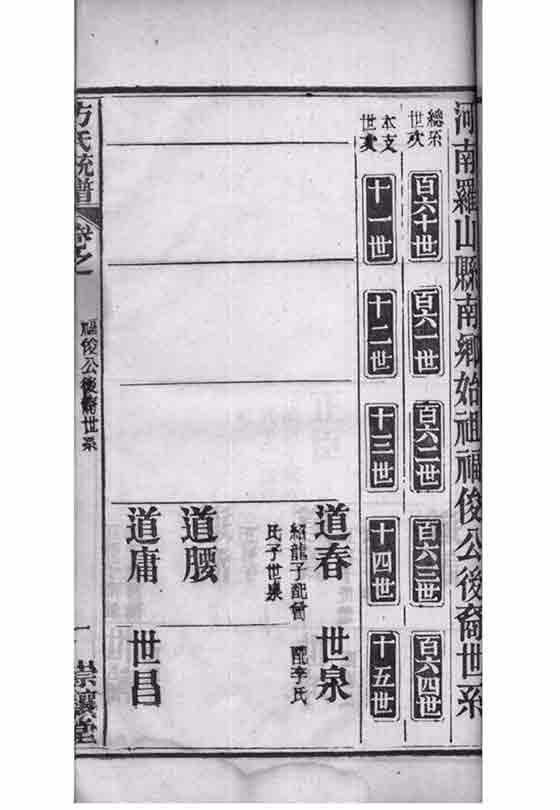 河南羅山縣南鄉始祖福俊公後裔世系
總系世次
百六十世
百六一世
百六二世
百六三世
百六四世
本支世次
十一世
十二世
十三世
十四世
十五世
道春
紹龍子配曾
氏子世泉
世泉
配李氏
道腰
道庸
世昌
方氏統譜
卷之一
福俊公後裔世系
一
崇讓堂